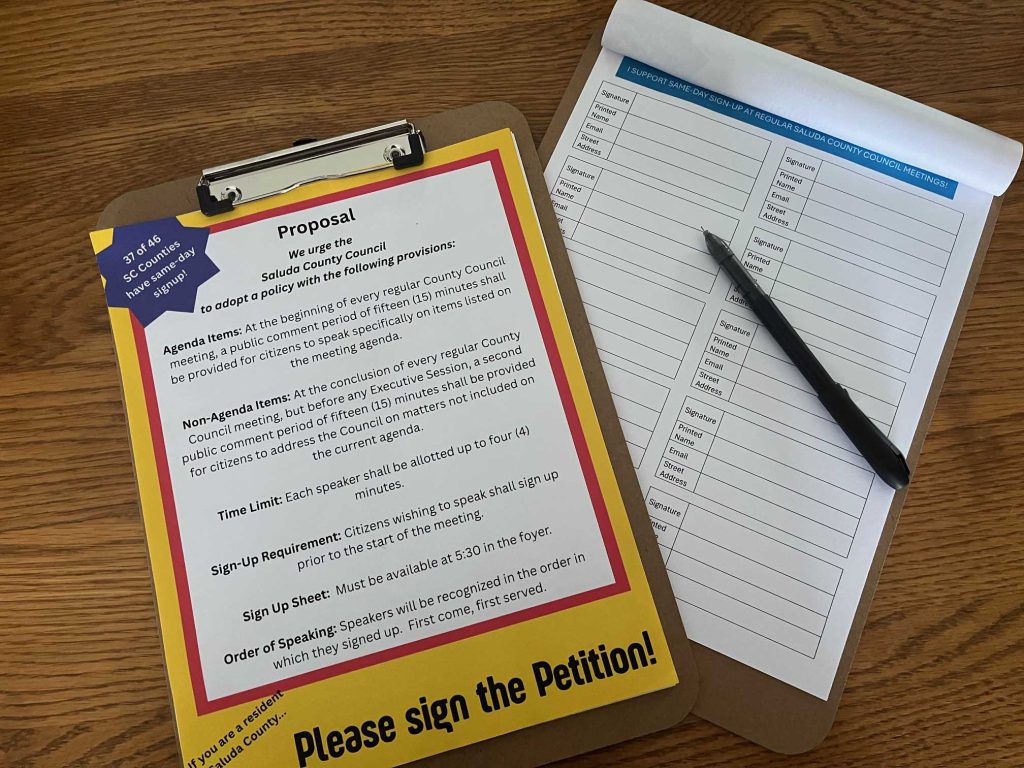 37 of 46
SC Counties
have same-day
signup!
Proposal
We urge the
Saluda County Council
to adopt a policy with the following provisions:
Agenda Items: At the beginning of every regular County Council
meeting, a public comment period of fifteen (15) minutes shall
be provided for citizens to speak specifically on items listed on
the meeting agenda.
Non-Agenda Items: At the conclusion of every regular County
Council meeting, but before any Executive Session, a second
public comment period of fifteen (15) minutes shall be provided
for citizens to address the Council on matters not included on
the current agenda.
Time Limit: Each speaker shall be allotted up to four (4)
minutes.
Sign-Up Requirement: Citizens wishing to speak shall sign up
prior to the start of the meeting.
Sign Up Sheet: Must be available at 5:30 in the foyer.
Order of Speaking: Speakers will be recognized in the order in
which they signed up. First come, first served.
If you are a resident
Saluda County...
Please sign the Petition!
I SUPPORT SAME-DAY SIGN-UP AT REGULAR SALUDA COUNTY COUNCIL MEETINGS!
Signature
Printed
Name
Email
Street
Address
Signature
Printed
Name
Email
Street
Address
Signature
Printed
Name
Email
Street
Address
Signature
Printed
Name
Email
Street
Address
Signature
Printed
Name
Email
Street
Address
Signature
Printed
Name
Email
Street
Address
Signature